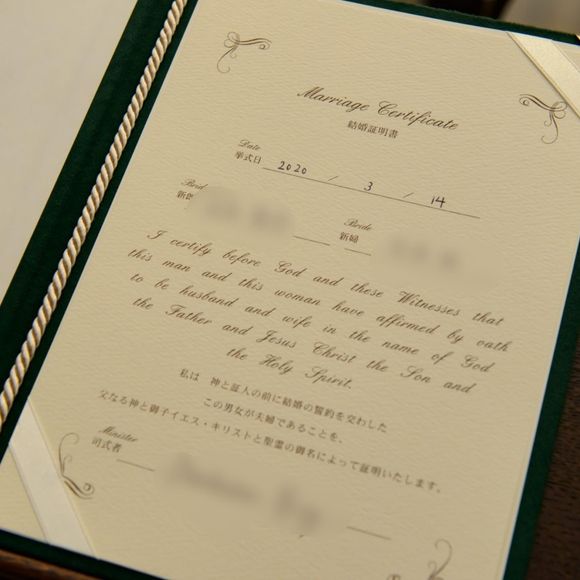 Marriage Certificate
結婚証明書
Date
挙式日 2020 / 3 / 14
Bride
新婦
I certify before God and these Witnesses that
this man and this woman have affirmed by oath
to be husband and wife in the name of God
the Father and Jesus Christ the Son and
the Holy Spirit.
私は 神と証人の前に結婚の誓約を交わした
この男女が夫婦であることを、
父なる神と御子イエス・キリストと聖霊の御名によって証明いたします。
Minister
司式者